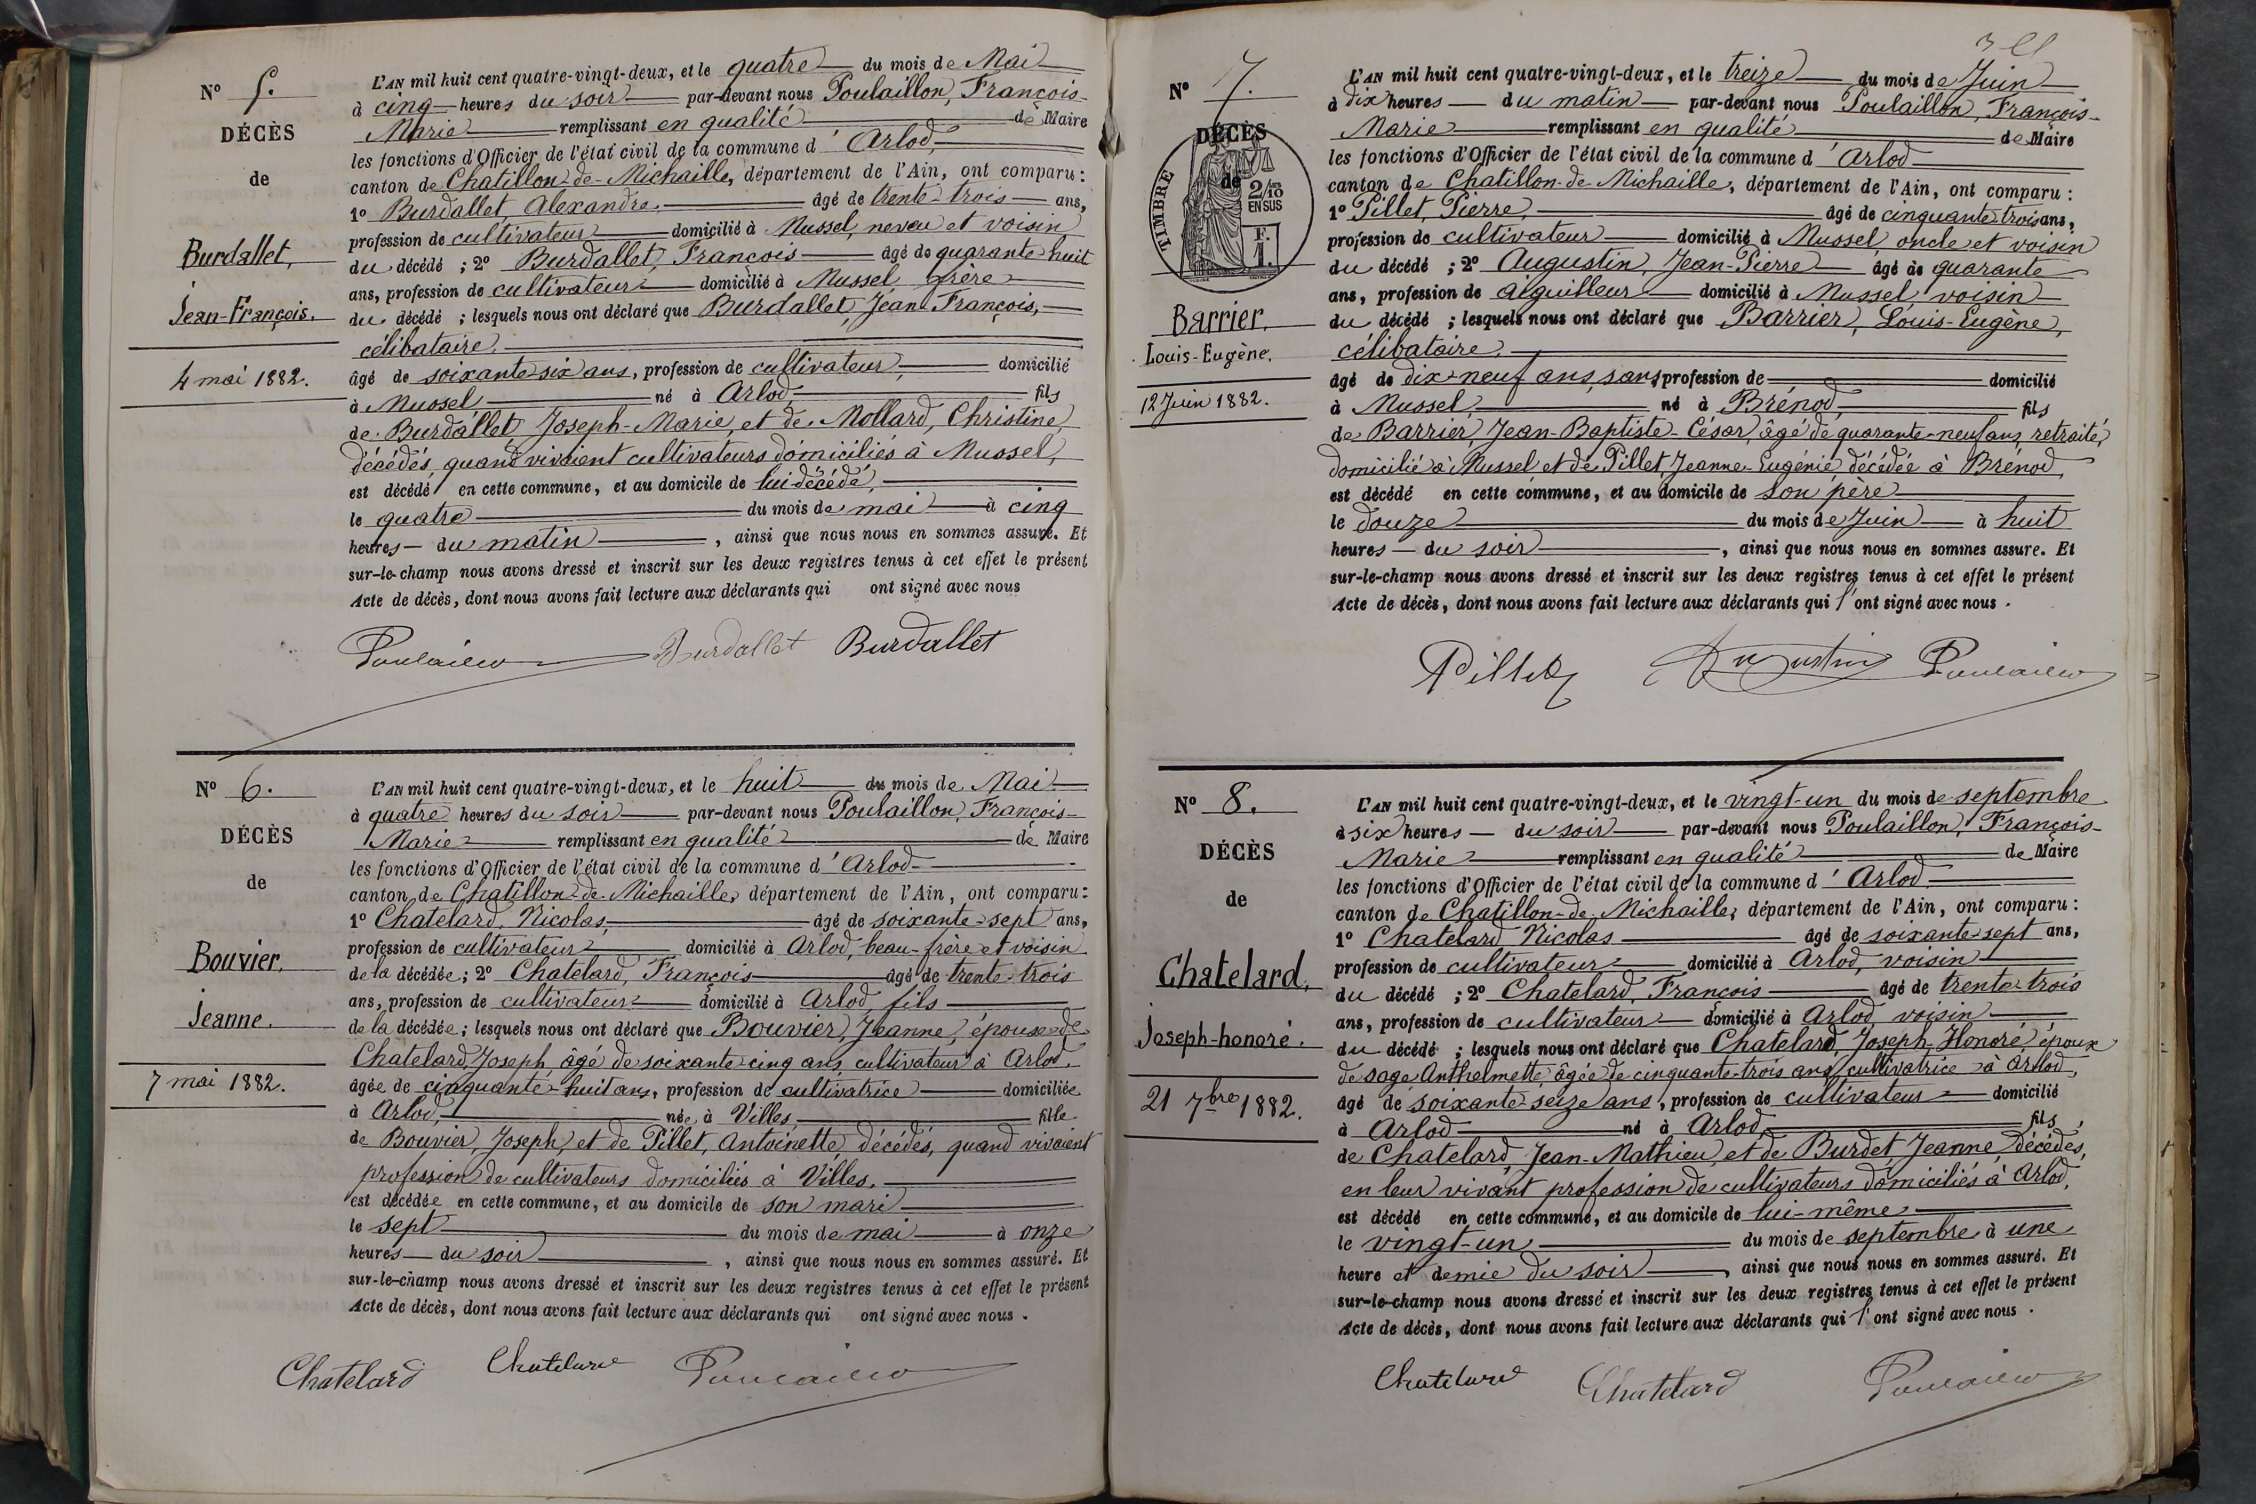 N° 5.
DÉCÈS
de
Burdallet,
Jean-François.
4 mai 1882.
L'AN mil huit cent quatre-vingt-deux, et le quatre du mois de Mai
à cinq heures du soir par-devant nous Poulaillon, François-
Marie remplissant en qualité de Maire
les fonctions d'Officier de l'état civil de la commune d'Arlod,
canton de Chatillon-de-Michaille, département de l'Ain, ont comparu :
1° Burdallet, Alexandre, âgé de trente-trois ans,
profession de cultivateur domicilié à Mussel, neveu et voisin
du décédé ; 2° Burdallet, François âgé de quarante-huit
ans, profession de cultivateur domicilié à Mussel, frère
du décédé ; lesquels nous ont déclaré que Burdallet, Jean-François,
célibataire,
âgé de soixante-six ans, profession de cultivateur, domicilié
à Mussel, né à Arlod, fils
de Burdallet, Joseph-Marie, et de Mollard, Christine,
décédés, quand vivaient cultivateurs domiciliés à Mussel,
est décédé en cette commune, et au domicile de lui décédé,
le quatre du mois de mai à cinq
heures du matin, ainsi que nous nous en sommes assuré. Et
sur-le-champ nous avons dressé et inscrit sur les deux registres tenus à cet effet le présent
Acte de décès, dont nous avons fait lecture aux déclarants qui ont signé avec nous
Poulaillon Burdallet Burdallet
N° 6.
DÉCÈS
de
Bouvier,
Jeanne.
7 mai 1882.
L'AN mil huit cent quatre-vingt-deux, et le huit du mois de Mai
à quatre heures du soir par-devant nous Poulaillon, François-
Marie remplissant en qualité de Maire
les fonctions d'Officier de l'état civil de la commune d'Arlod
canton de Chatillon-de-Michaille, département de l'Ain, ont comparu :
1° Chatelard, Nicolas, âgé de soixante-sept ans,
profession de cultivateur domicilié à Arlod, beau-frère et voisin
de la décédée ; 2° Chatelard, François âgé de trente-trois
ans, profession de cultivateur domicilié à Arlod, fils
de la décédée ; lesquels nous ont déclaré que Bouvier, Jeanne, épouse de
Chatelard, Joseph, âgé de soixante-cinq ans, cultivateur à Arlod.
âgée de cinquante-huit ans, profession de cultivatrice domiciliée
à Arlod, née à Villes, fille
de Bouvier, Joseph, et de Pillet, Antoinette, décédés, quand vivaient
profession de cultivateurs domiciliés à Villes,
est décédée en cette commune, et au domicile de son mari
le sept du mois de mai à onze
heures du soir, ainsi que nous nous en sommes assuré. Et
sur-le-champ nous avons dressé et inscrit sur les deux registres tenus à cet effet le présent
Acte de décès, dont nous avons fait lecture aux déclarants qui ont signé avec nous.
Chatelard Chatelard Poulaillon
N° 7.
DÉCÈS
de
TIMBRE
2/10
EN SUS
F.
1.
Barrier,
Louis-Eugène.
12 Juin 1882.
L'AN mil huit cent quatre-vingt-deux, et le treize du mois de Juin
à dix heures du matin par-devant nous Poulaillon, François-
Marie remplissant en qualité de Maire
les fonctions d'Officier de l'état civil de la commune d'Arlod
canton de Chatillon-de-Michaille, département de l'Ain, ont comparu :
1° Pillet, Pierre, âgé de cinquante-trois ans,
profession de cultivateur domicilié à Mussel, oncle et voisin
du décédé ; 2° Augustin, Jean-Pierre âgé de quarante
ans, profession de aiguilleur domicilié à Mussel, voisin
du décédé ; lesquels nous ont déclaré que Barrier, Louis-Eugène,
célibataire,
âgé de dix-neuf ans, sans profession de domicilié
à Mussel, né à Brénod, fils
de Barrier, Jean-Baptiste-César, âgé de quarante-neuf ans, retraité,
domicilié à Mussel et de Pillet, Jeanne-Eugénie, décédée à Brénod,
est décédé en cette commune, et au domicile de son père
le douze du mois de Juin à huit
heures du soir, ainsi que nous nous en sommes assuré. Et
sur-le-champ nous avons dressé et inscrit sur les deux registres tenus à cet effet le présent
Acte de décès, dont nous avons fait lecture aux déclarants qui l'ont signé avec nous.
Pillet Augustin Poulaillon
N° 8.
DÉCÈS
de
Chatelard,
Joseph-honoré.
21 7bre 1882.
L'AN mil huit cent quatre-vingt-deux, et le vingt-un du mois de septembre
à six heures du soir par-devant nous Poulaillon, François-
Marie remplissant en qualité de Maire
les fonctions d'Officier de l'état civil de la commune d'Arlod
canton de Chatillon-de-Michaille, département de l'Ain, ont comparu :
1° Chatelard Nicolas âgé de soixante-sept ans,
profession de cultivateur domicilié à Arlod, voisin
du décédé ; 2° Chatelard, François âgé de trente-trois
ans, profession de cultivateur domicilié à Arlod voisin
du décédé ; lesquels nous ont déclaré que Chatelard, Joseph-Honoré, époux
de Sage Anthelmette, âgée de cinquante-trois ans, cultivatrice à Arlod,
âgé de soixante-seize ans, profession de cultivateur domicilié
à Arlod né à Arlod, fils
de Chatelard, Jean-Mathieu, et de Burdet, Jeanne, décédés,
en leur vivant profession de cultivateurs domiciliés à Arlod,
est décédé en cette commune, et au domicile de lui-même
le vingt-un du mois de septembre à une
heure et demie du soir, ainsi que nous nous en sommes assuré. Et
sur-le-champ nous avons dressé et inscrit sur les deux registres tenus à cet effet le présent
Acte de décès, dont nous avons fait lecture aux déclarants qui l'ont signé avec nous.
Chatelard Chatelard Poulaillon